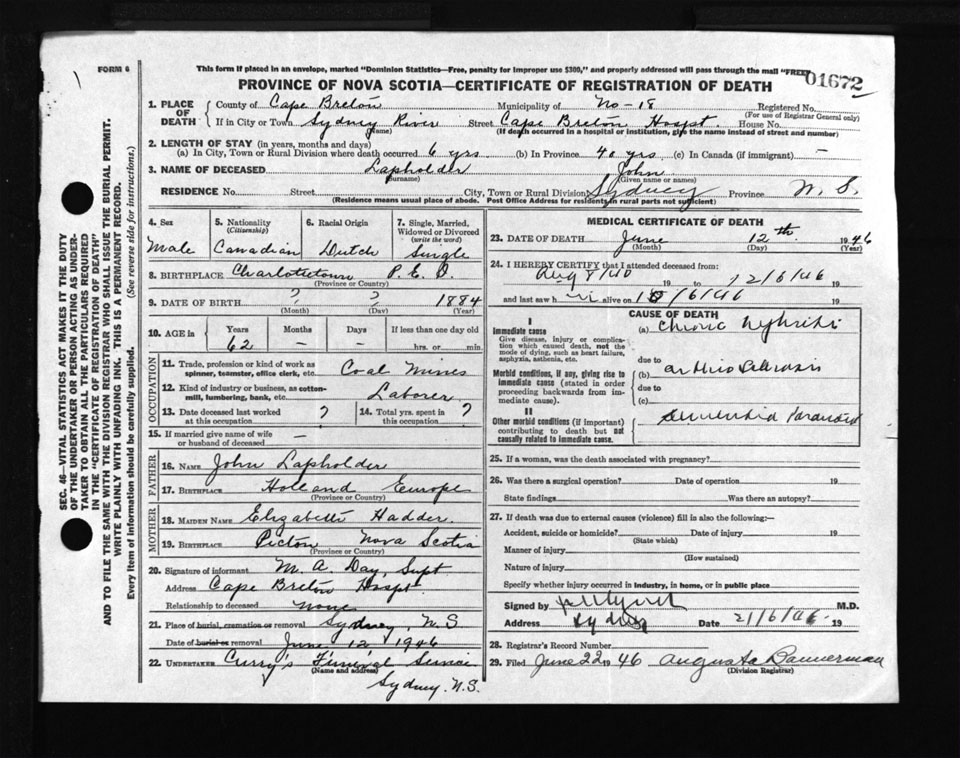 FORM 6
This form if placed in an envelope, marked "Dominion Statistics—Free, penalty for improper use $300," and properly addressed will pass through the mail "FREE"
01672
PROVINCE OF NOVA SCOTIA—CERTIFICATE OF REGISTRATION OF DEATH
SEC. 46—VITAL STATISTICS ACT MAKES IT THE DUTY
OF THE UNDERTAKER OR PERSON ACTING AS UNDER-
TAKER TO OBTAIN ALL THE PARTICULARS REQUIRED
IN THE "CERTIFICATE OF REGISTRATION OF DEATH"
AND TO FILE THE SAME WITH THE DIVISION REGISTRAR WHO SHALL ISSUE THE BURIAL PERMIT.
WRITE PLAINLY WITH UNFADING INK. THIS IS A PERMANENT RECORD.
Every item of information should be carefully supplied. (See reverse side for instructions.)
1. PLACE OF DEATH { County of Cape Breton Municipality of No-18 Registered No.
(For use of Registrar General only)
If in City or Town Sydney River Street Cape Breton Hospt. House No.
(Name) (If death occurred in a hospital or institution, give the name instead of street and number)
2. LENGTH OF STAY (in years, months and days)
(a) In City, Town or Rural Division where death occurred 6 yrs (b) In Province 40 yrs. (c) In Canada (if immigrant) —
3. NAME OF DECEASED Lapholder John
(Surname) (Given name or names)
RESIDENCE No. Street City, Town or Rural Division Sydney Province N.S.
(Residence means usual place of abode. Post Office Address for residents in rural parts not sufficient)
4. Sex Male
5. Nationality (Citizenship) Canadian
6. Racial Origin Dutch
7. Single, Married, Widowed or Divorced (write the word) Single
8. BIRTHPLACE Charlottetown P.E.I.
(Province or Country)
9. DATE OF BIRTH ? ? 1884
(Month) (Day) (Year)
10. AGE in { Years Months Days If less than one day old
62 — — hrs. or min.
OCCUPATION
11. Trade, profession or kind of work as spinner, teamster, office clerk, etc. Coal Mines
12. Kind of industry or business, as cotton-mill, lumbering, bank, etc. Laborer
13. Date deceased last worked at this occupation ? 14. Total yrs. spent in this occupation ?
15. If married give name of wife or husband of deceased —
FATHER
16. NAME John Lapholder
17. BIRTHPLACE Holland Europe
(Province or Country)
MOTHER
18. MAIDEN NAME Elizabeth Hadder.
19. BIRTHPLACE Picton Nova Scotia
(Province or Country)
20. Signature of informant M. A. Day, Supt
Address Cape Breton Hospt.
Relationship to deceased none
21. Place of burial, cremation or removal Sydney, N.S
Date of burial or removal June 12, 1946
22. UNDERTAKER Curry's Funeral Service
(Name and address)
Sydney. N.S.
MEDICAL CERTIFICATE OF DEATH
23. DATE OF DEATH June 12th 1946
(Month) (Day) (Year)
24. I HEREBY CERTIFY that I attended deceased from:
Aug 8/40 19 to 12/6/46 19
and last saw h im alive on /6/46 19
CAUSE OF DEATH
I
Immediate cause
Give disease, injury or complication which caused death, not the mode of dying, such as heart failure, asphyxia, asthenia, etc.
(a) Chronic Nephritis
due to
Morbid conditions, if any, giving rise to immediate cause (stated in order proceeding backwards from immediate cause).
(b) arthrio Sclerosis
due to
(c)
II
Other morbid conditions (if important) contributing to death but not causally related to immediate cause.
Dementia Paranoid
25. If a woman, was the death associated with pregnancy?
26. Was there a surgical operation? Date of operation 19
State findings Was there an autopsy?
27. If death was due to external causes (violence) fill in also the following:—
Accident, suicide or homicide? Date of injury 19
(State which)
Manner of injury
(How sustained)
Nature of injury
Specify whether injury occurred in industry, in home, or in public place
Signed by M.D.
Address Sydney Date 21/6/46 19
28. Registrar's Record Number
29. Filed June 22 1946 Augusta Bannerman
(Division Registrar)